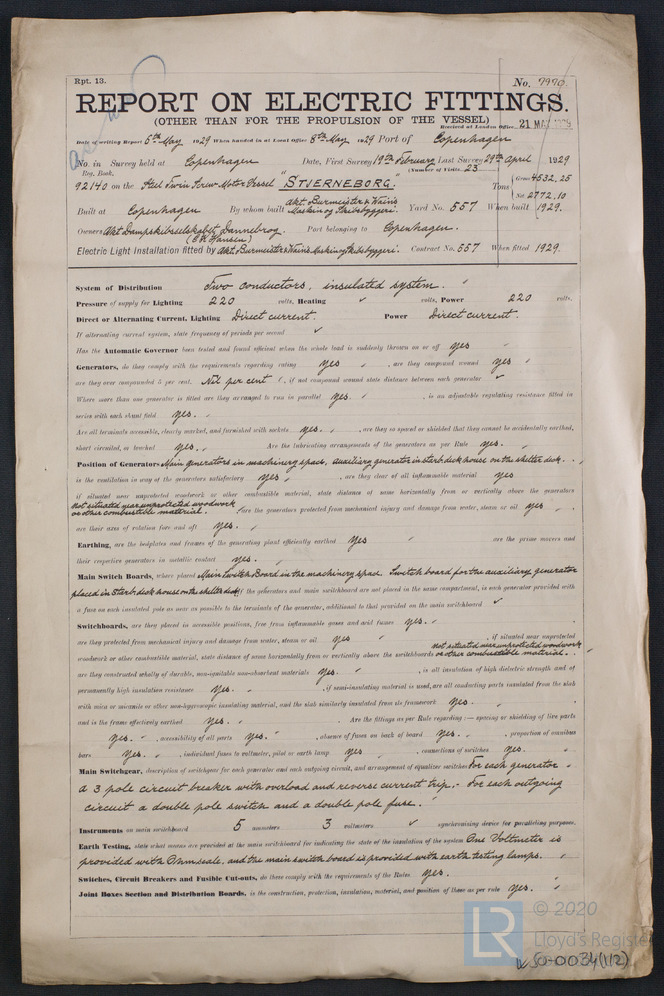 Rpt. 13.
No. 7970.
REPORT ON ELECTRIC FITTINGS.
(OTHER THAN FOR THE PROPULSION OF THE VESSEL)
Received at London Office 21 MAY 1929
Date of writing Report 6th May 1929 When handed in at Local Office 8th May 1929 Port of Copenhagen
No. in Survey held at Copenhagen Date, First Survey 19th February Last Survey 29th April 1929
Reg. Book. (Number of Visits 23
92140 on the Steel Twin Screw Motor Vessel "STJERNEBORG." Tons { Gross 4532.25
Net 2772.10
Built at Copenhagen By whom built Akt. Burmeister & Wain's Maskin og Skibsbyggeri. Yard No. 557 When built 1929.
Owners Akt Dampskibsselskabet Dannebrog (C.K. Hansen) Port belonging to Copenhagen.
Electric Light Installation fitted by Akt. Burmeister & Wain's Maskin og Skibsbyggeri. Contract No. 557 When fitted 1929.
System of Distribution Two conductors, insulated system.
Pressure of supply for Lighting 220 volts, Heating ✓ volts, Power 220 volts.
Direct or Alternating Current, Lighting Direct current. Power Direct current.
If alternating current system, state frequency of periods per second ✓
Has the Automatic Governor been tested and found efficient when the whole load is suddenly thrown on or off yes
Generators, do they comply with the requirements regarding rating yes , are they compound wound yes
are they over compounded 5 per cent. Nil per cent , if not compound wound state distance between each generator ✓
Where more than one generator is fitted are they arranged to run in parallel yes. , is an adjustable regulating resistance fitted in
series with each shunt field yes.
Are all terminals accessible, clearly marked, and furnished with sockets yes. , are they so spaced or shielded that they cannot be accidentally earthed,
short circuited, or touched yes. Are the lubricating arrangements of the generators as per Rule yes.
Position of Generators Main generators in machinery space, auxiliary generator in starb deck house on the shelter deck.
is the ventilation in way of the generators satisfactory yes , are they clear of all inflammable material yes
if situated near unprotected woodwork or other combustible material, state distance of same horizontally from or vertically above the generators
not situated near unprotected woodwork or other combustible material. , are the generators protected from mechanical injury and damage from water, steam or oil yes
are their axes of rotation fore and aft yes.
Earthing, are the bedplates and frames of the generating plant efficiently earthed yes are the prime movers and
their respective generators in metallic contact yes.
Main Switch Boards, where placed Main Switch Board in the machinery space. Switch board for the auxiliary generator
placed in starb deck house on the shelter deck if the generators and main switchboard are not placed in the same compartment, is each generator provided with
a fuse on each insulated pole as near as possible to the terminals of the generator, additional to that provided on the main switchboard ✓
Switchboards, are they placed in accessible positions, free from inflammable gases and acid fumes yes.
are they protected from mechanical injury and damage from water, steam or oil yes , if situated near unprotected
woodwork or other combustible material, state distance of same horizontally from or vertically above the switchboards not situated near unprotected woodwork or other combustible material.
are they constructed wholly of durable, non-ignitable non-absorbent materials yes. , is all insulation of high dielectric strength and of
permanently high insulation resistance yes. , if semi-insulating material is used, are all conducting parts insulated from the slab
with mica or micanite or other non-hygroscopic insulating material, and the slab similarly insulated from its framework yes.
and is the frame effectively earthed yes. Are the fittings as per Rule regarding :— spacing or shielding of live parts
yes. , accessibility of all parts yes. , absence of fuses on back of board yes. , proportion of omnibus
bars yes. , individual fuses to voltmeter, pilot or earth lamp yes , connections of switches yes.
Main Switchgear, description of switchgear for each generator and each outgoing circuit, and arrangement of equalizer switches For each generator
a 3 pole circuit breaker with overload and reverse current trip. - For each outgoing
circuit a double pole switch and a double pole fuse.
Instruments on main switchboard 5 ammeters 3 voltmeters ✓ synchronising device for paralleling purposes.
Earth Testing, state what means are provided at the main switchboard for indicating the state of the insulation of the system One Voltmeter is
provided with Ohmscale, and the main switch board is provided with earth testing lamps.
Switches, Circuit Breakers and Fusible Cut-outs, do these comply with the requirements of the Rules yes.
Joint Boxes Section and Distribution Boards, is the construction, protection, insulation, material, and position of these as per rule yes.
LR
© 2020
Lloyd's Register